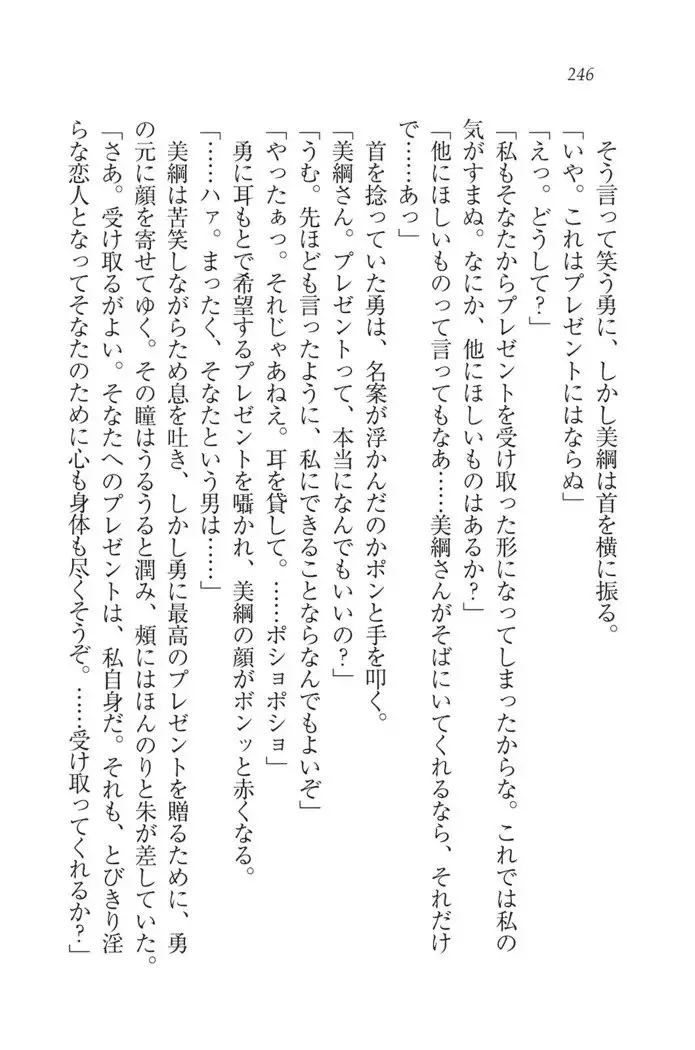 246
そう言って笑う勇に、しかし美綱は首を横に振る。
「いや。これはプレゼントにはならぬ」
「えっ。どうして?」
「私もそなたからプレゼントを受け取った形になってしまったからな。これでは私の
気がすまぬ。なにか、他にほしいものはあるか?」
「他にほしいものって言ってもなあ……美綱さんがそばにいてくれるなら、それだけ
で……あっ」
首を捻っていた勇は、名案が浮かんだのかポンと手を叩く。
「美綱さん。プレゼントって、本当になんでもいいの?」
「うむ。先ほども言ったように、私にできることならなんでもよいぞ」
「やったぁっ。それじゃあねえ。耳を貸して。……ポショポショ」
勇に耳もとで希望するプレゼントを囁かれ、美綱の顔がボンッと赤くなる。
「……ハァ。まったく、そなたという男は……」
美綱は苦笑しながらため息を吐き、しかし勇に最高のプレゼントを贈るために、勇
の元に顔を寄せてゆく。その瞳はうるうると潤み、頬にはほんのりと朱が差していた。
「さあ。受け取るがよい。そなたへのプレゼントは、私自身だ。それも、とびきり淫
らな恋人となってそなたのために心も身体も尽くそうぞ。……受け取ってくれるか?」